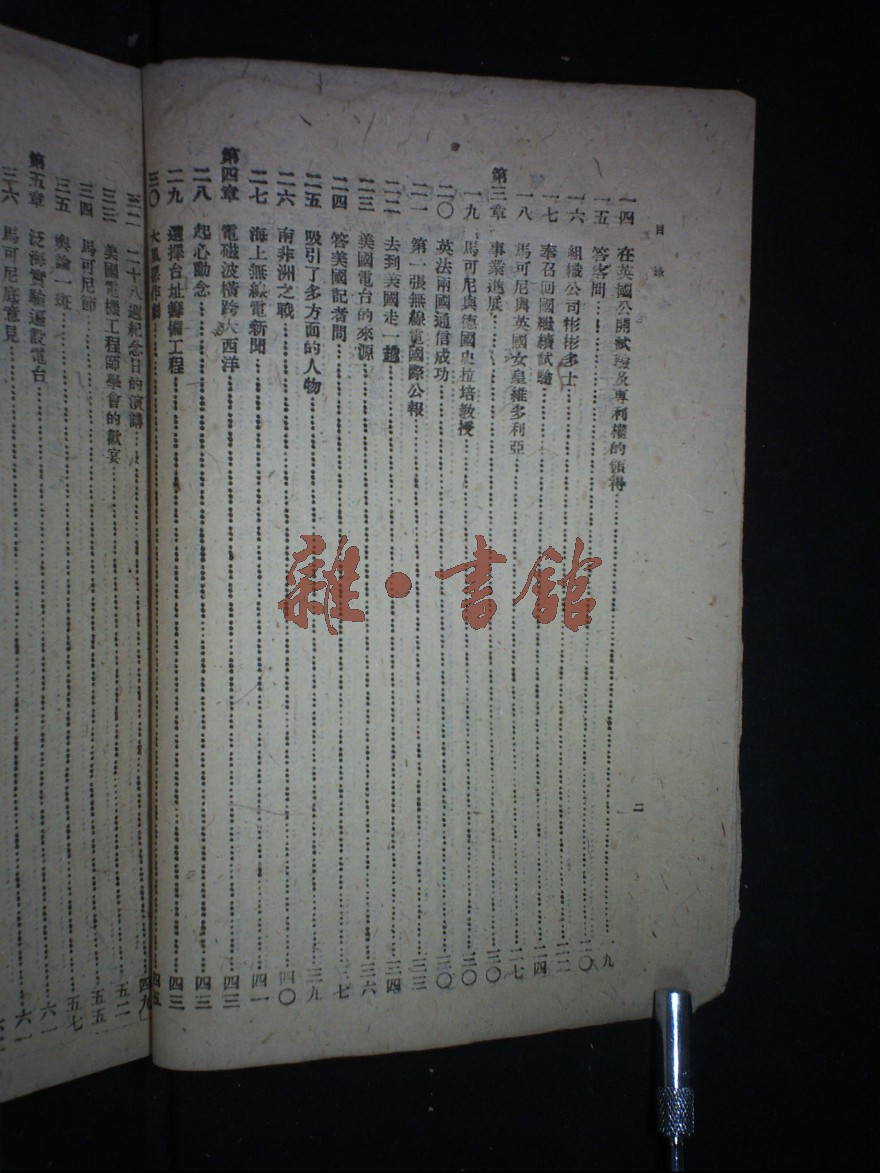 目錄
二
一四 在英國公開試驗及專利權的領得 一九
一五 答客問 二〇
一六 組織公司彬彬多士 二二
一七 奉召回國繼續試驗 二四
一八 馬可尼與英國女皇維多利亞 二七
第三章 事業進展 三〇
一九 馬可尼與德國史拉培教授 三〇
二〇 英法兩國通信成功 三〇
二一 第一張無線電國際公報 三三
二二 去到美國走一趟 三四
二三 美國電台的來源 三六
二四 答美國記者問 三七
二五 吸引了多方面的人物 三九
二六 南非洲之戰 四〇
二七 海上無線電新聞 四一
第四章 電磁波橫跨大西洋 四三
二八 起心動念 四三
二九 選擇台址籌備工程 四三
三〇 大風 四五
二十八週紀念日的演講 四九
三三 美國電機工程師學會的歡宴 五二
三四 馬可尼節 五五
三五 輿論一斑 五七
第五章 泛海實驗遍設電台 六一
三六 馬可尼底意見 六一
雜·書館